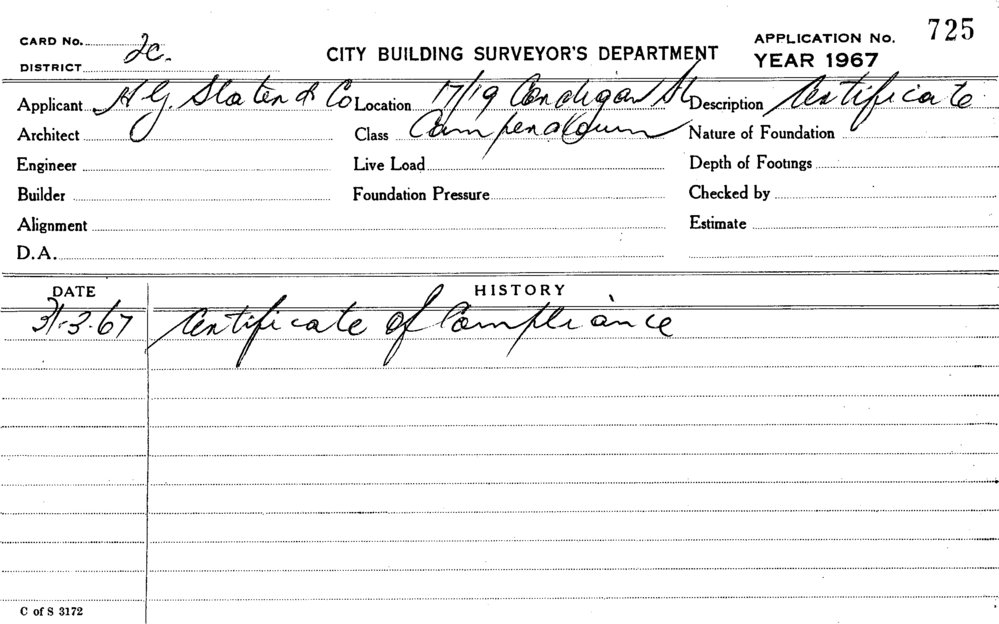 CARD No. 2c. CITY BUILDING SURVEYOR'S DEPARTMENT APPLICATION No. 725
DISTRICT YEAR 1967
Applicant H G. Slater & Co Location 17/19 Cardigan St Description Certificate
Architect Class Camperdown Nature of Foundation
Engineer Live Load Depth of Footings
Builder Foundation Pressure Checked by
Alignment Estimate
D.A.
DATE HISTORY
31-3-67 Certificate of Compliance
C of S 3172